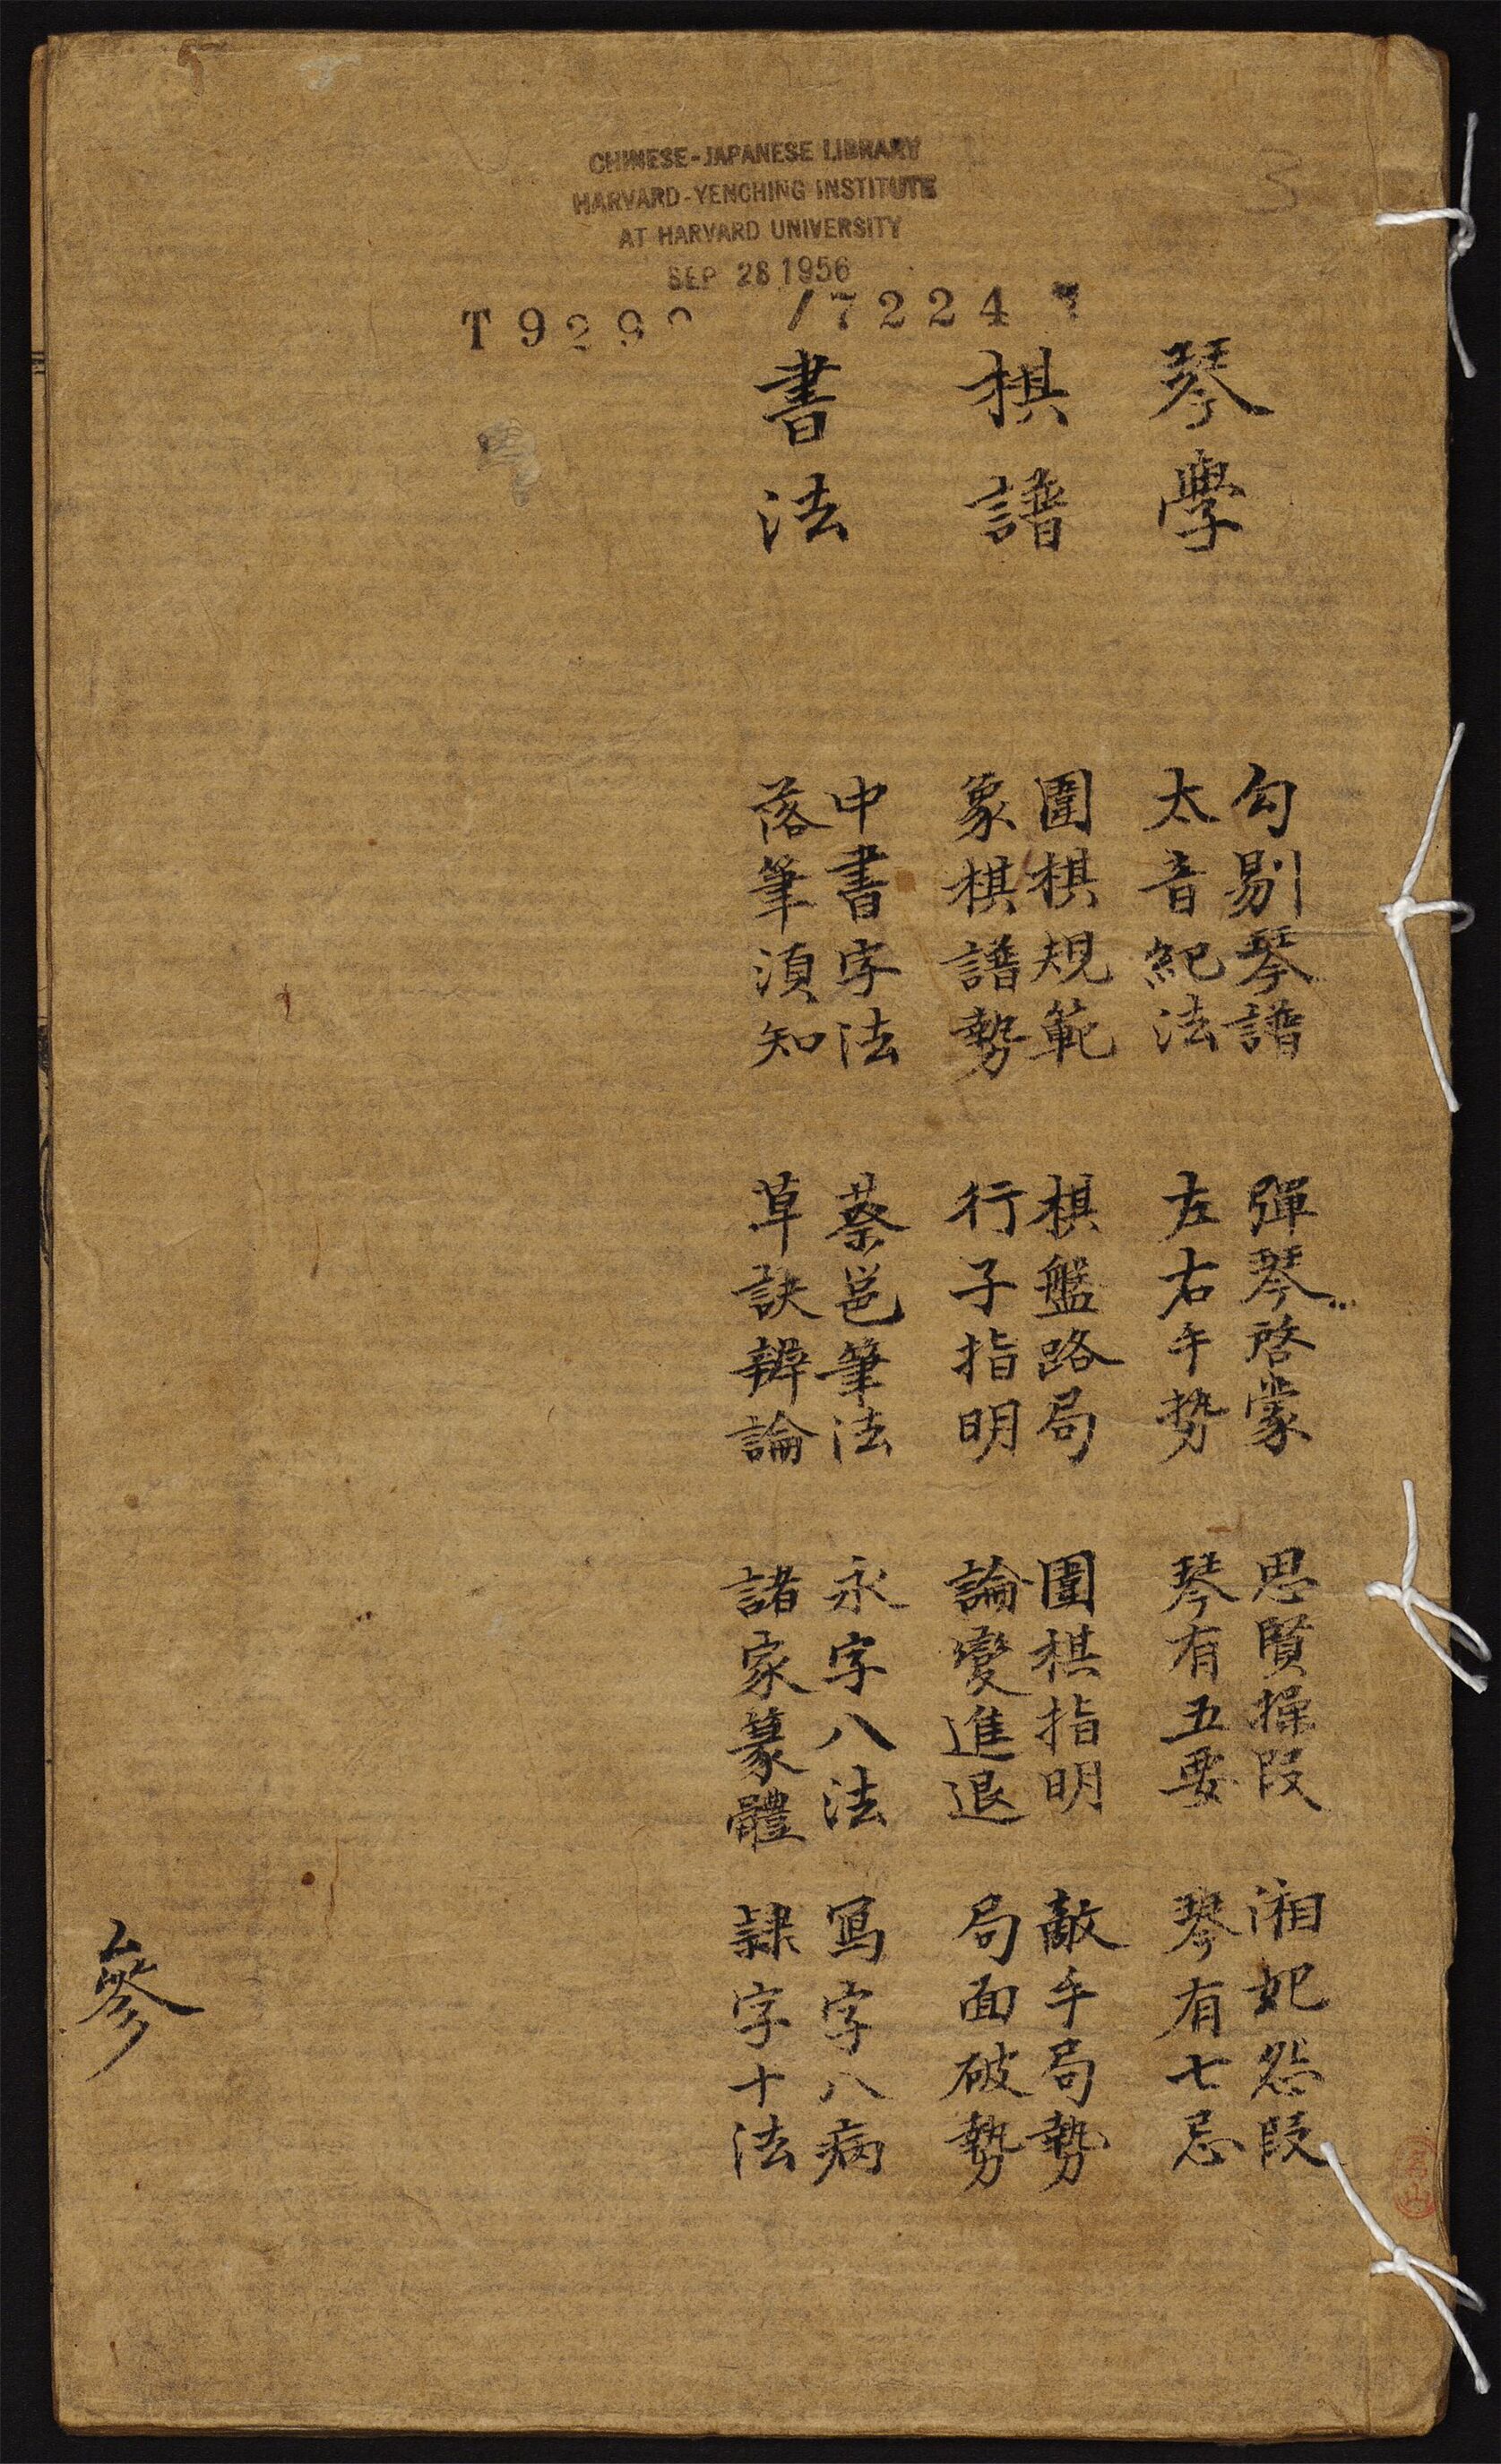 CHINESE-JAPANESE LIBRARY
HARVARD-YENCHING INSTITUTE
AT HARVARD UNIVERSITY
SEP 28 1956
T 9299 /7224
3
琴學
勾剔琴譜 彈琴啓蒙 思賢操段 湘妃怨段
太音紀法 左右手势 琴有五要 琴有七忌
棋譜
圍棋規範 棋盤路局 圍棋指明 敵手局勢
象棋譜勢 行子指明 論變進退 局面破勢
書法
中書字法 蔡邕筆法 永字八法 寫字八病
落筆須知 草訣辨論 諸家篆體 隸字十法
參